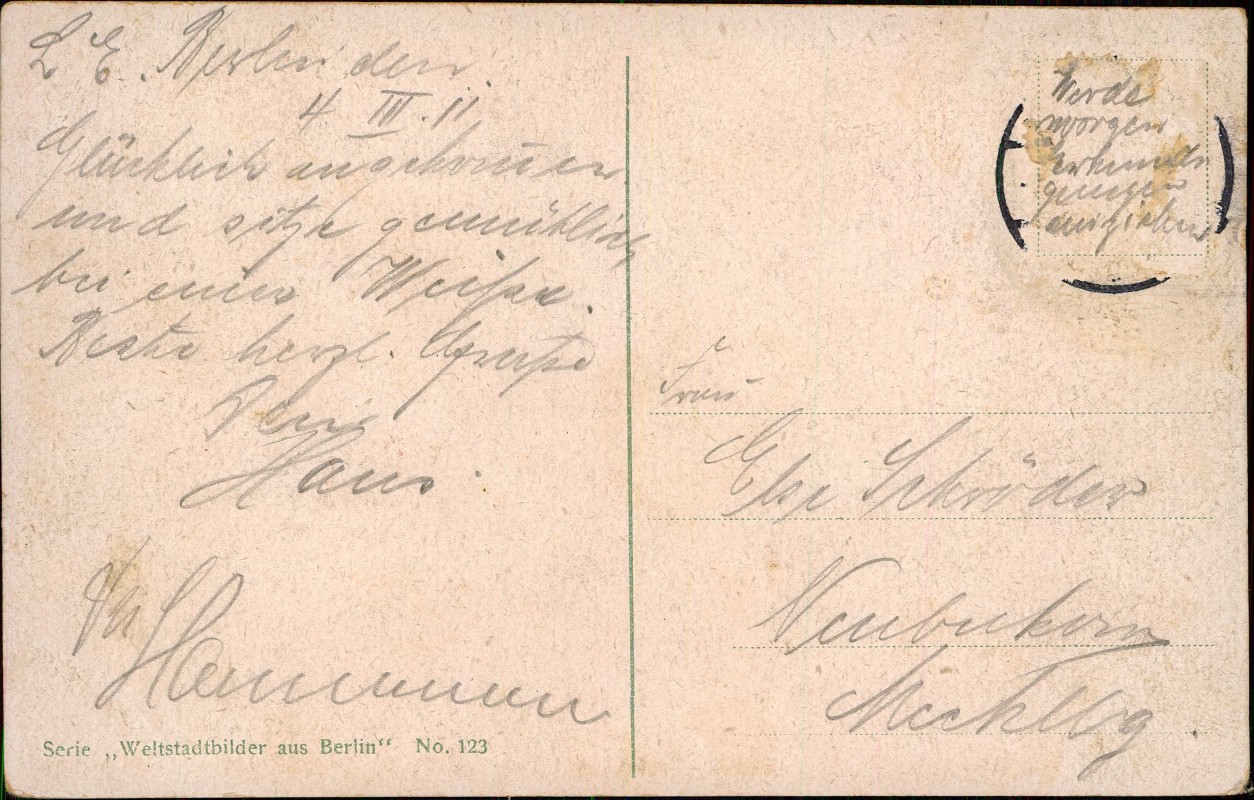 L. E. Berlin den
4 III. 11
Glücklich angekommen
und sitze gemütlich
bei einer Weißen.
Beste herzl. Grüße
Dein
Hans.
Hammann
Serie „Weltstadtbilder aus Berlin“ No. 123
Werde
morgen
einziehen
Frau
Else Schröder
Neubukow
Mecklbg